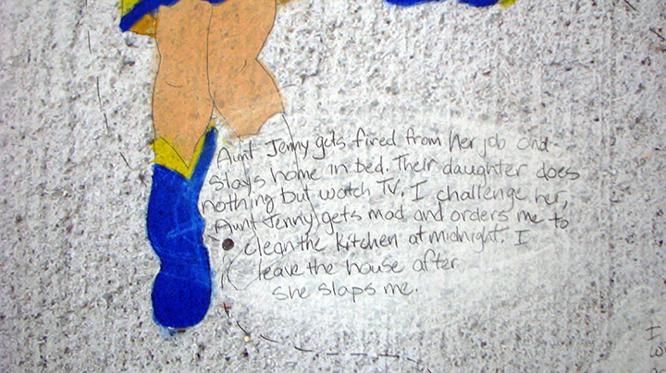 Aunt Jenny gets fired from her job and
stays home in bed. Their daughter does
nothing but watch TV. I challenge her,
Aunt Jenny gets mad and orders me to
clean the kitchen at midnight. I
leave the house after
she slaps me.